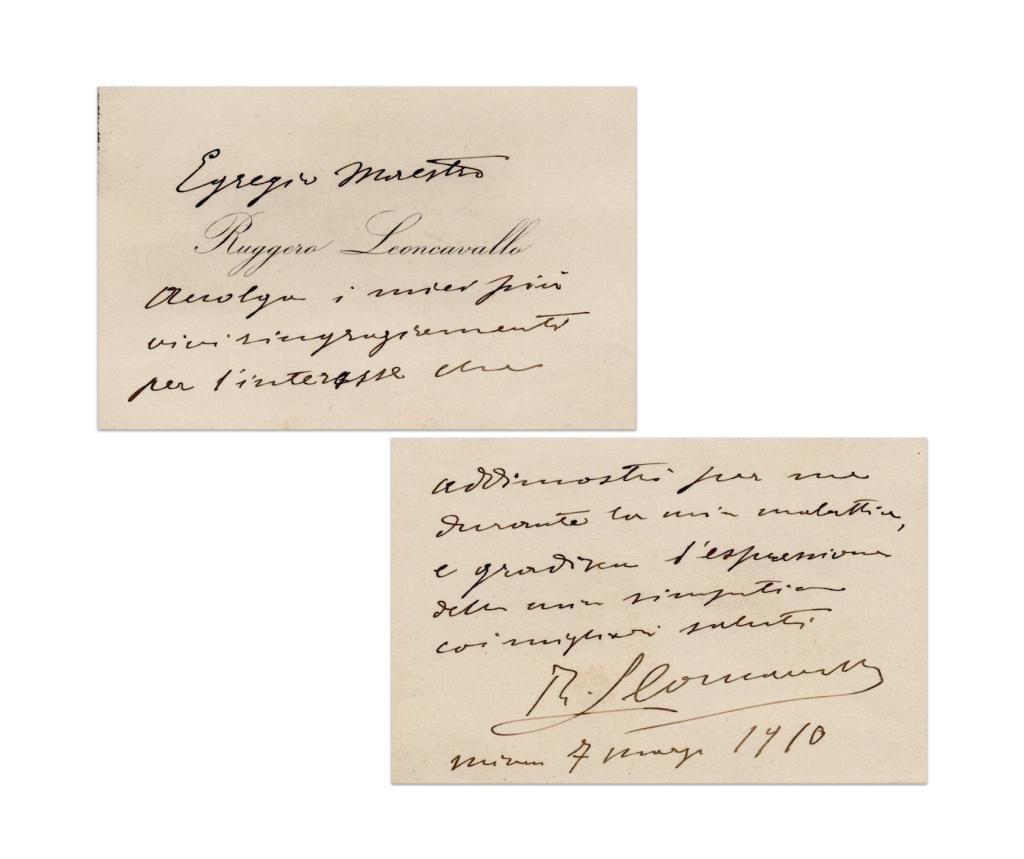 Egregio Maestro
Ruggero Leoncavallo
Accolga i miei più
vivi ringraziamenti
per l'interesse che
addimostrò per me
durante la mia malattia,
e gradisca l'espressione
della mia simpatia
coi migliori saluti
R. Leoncavallo
7 marzo 1910